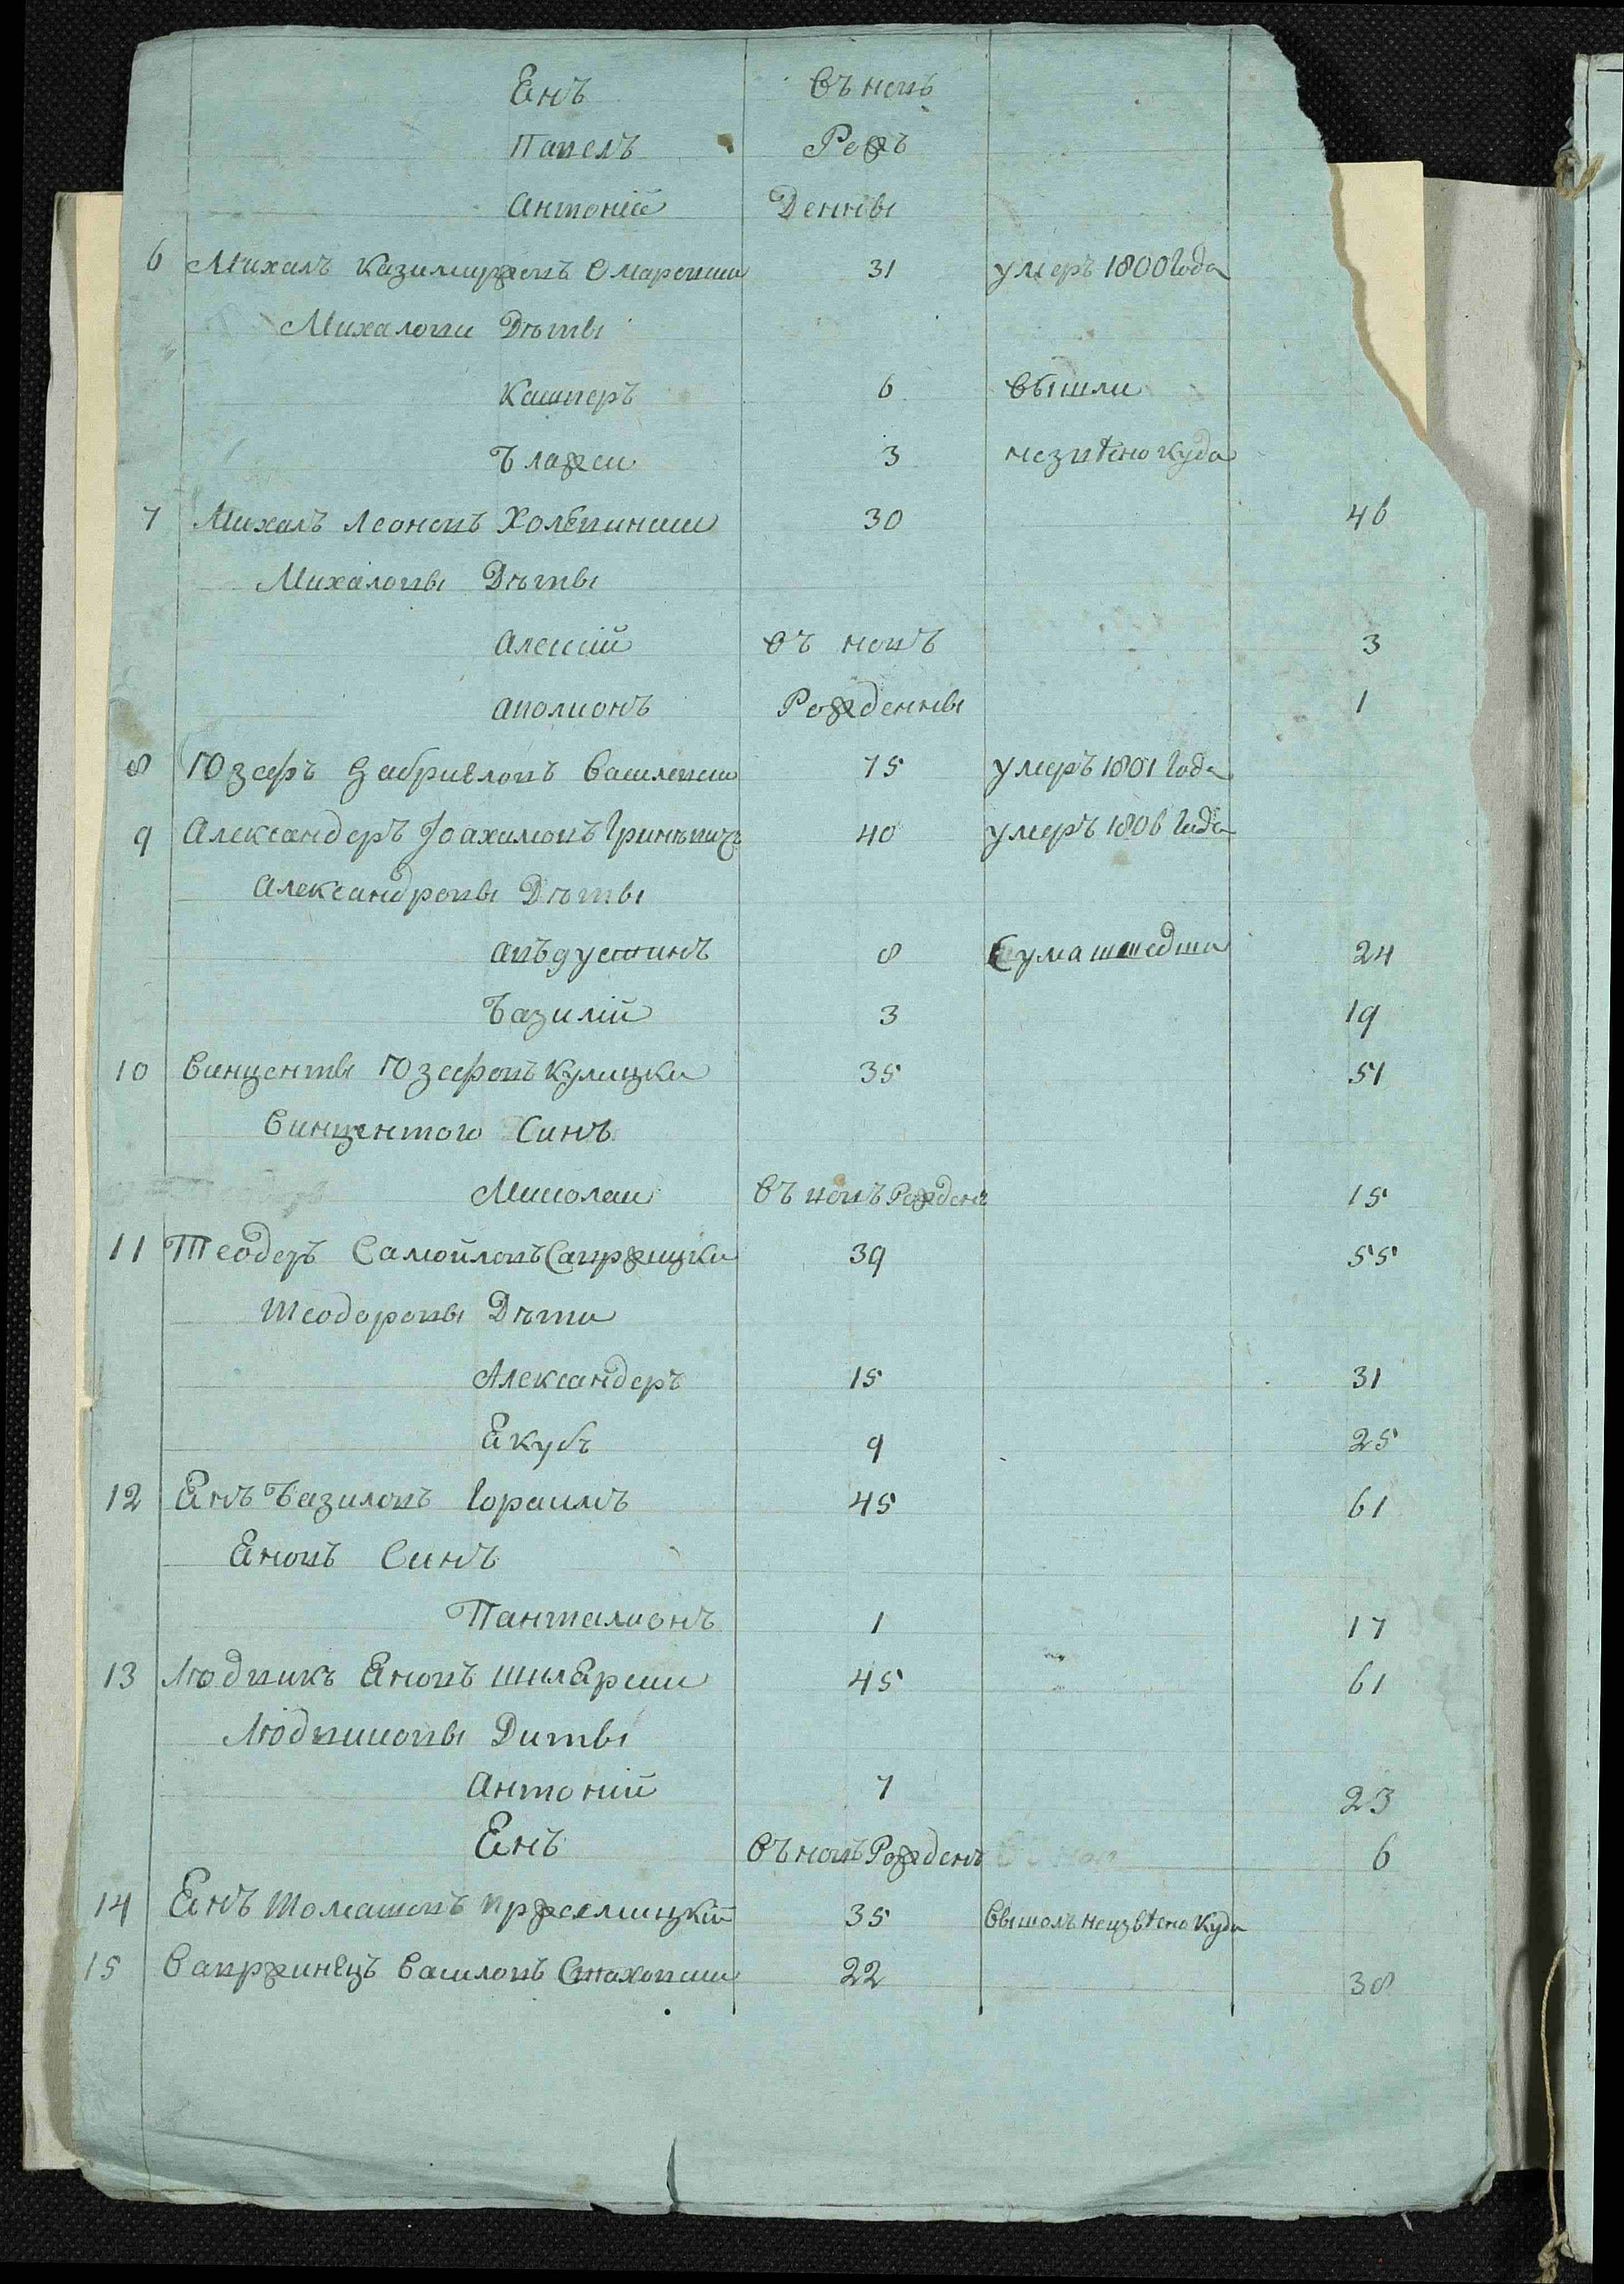 Янъ Въ новъ
Павелъ Рож
Антоній Денны
6 Михалъ Казимировъ 31 умеръ 1800 Года
Михалови Дѣты
Кашперъ 6 Вышли
Блажеи 3 незвѣсно куда
7 Михалъ Леоновъ 30 46
Михаловы Дѣты
Алексій Въ новъ 3
Аполионъ Рожденны 1
8 Юзефъ Габриеловъ Василевски 75 умеръ 1801 Года
9 Александеръ Іоахимовъ Гриневичъ 40 умеръ 1806 Года
Александровы Дѣты
Авъгустинъ 8 Сумашшедши 24
Базилій 3 19
10 Винценты Юзефовъ Кулицки 35 51
Винцентого Синъ
Миколаи Въ новъ Рожденъ 15
11 Теодеръ Самойловъ 39 55
Теодоровы Дѣти
Александеръ 15 31
Якубъ 9 25
12 Янъ Базиловъ Гораимъ 45 61
Яновъ Синъ
Панталионъ 1 17
13 Людвикъ Яновъ Шклярски 45 61
Людвиковы Диты
Антоній 7 23
Янъ Въ новъ Рожденъ 6
14 Янъ Томашовъ 35 Вышолъ неизвѣсно куда
15 Вавржинецъ Василовъ Стаховски 22 38